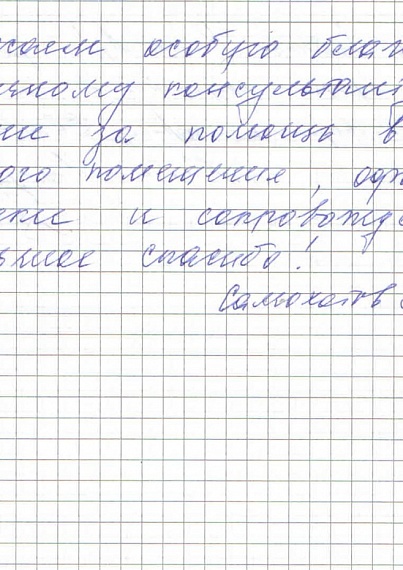 жаем особую благ
чному консультант
ии за помощь в
ого помещения, офо
еки и сопровожде
ьшое спасибо!